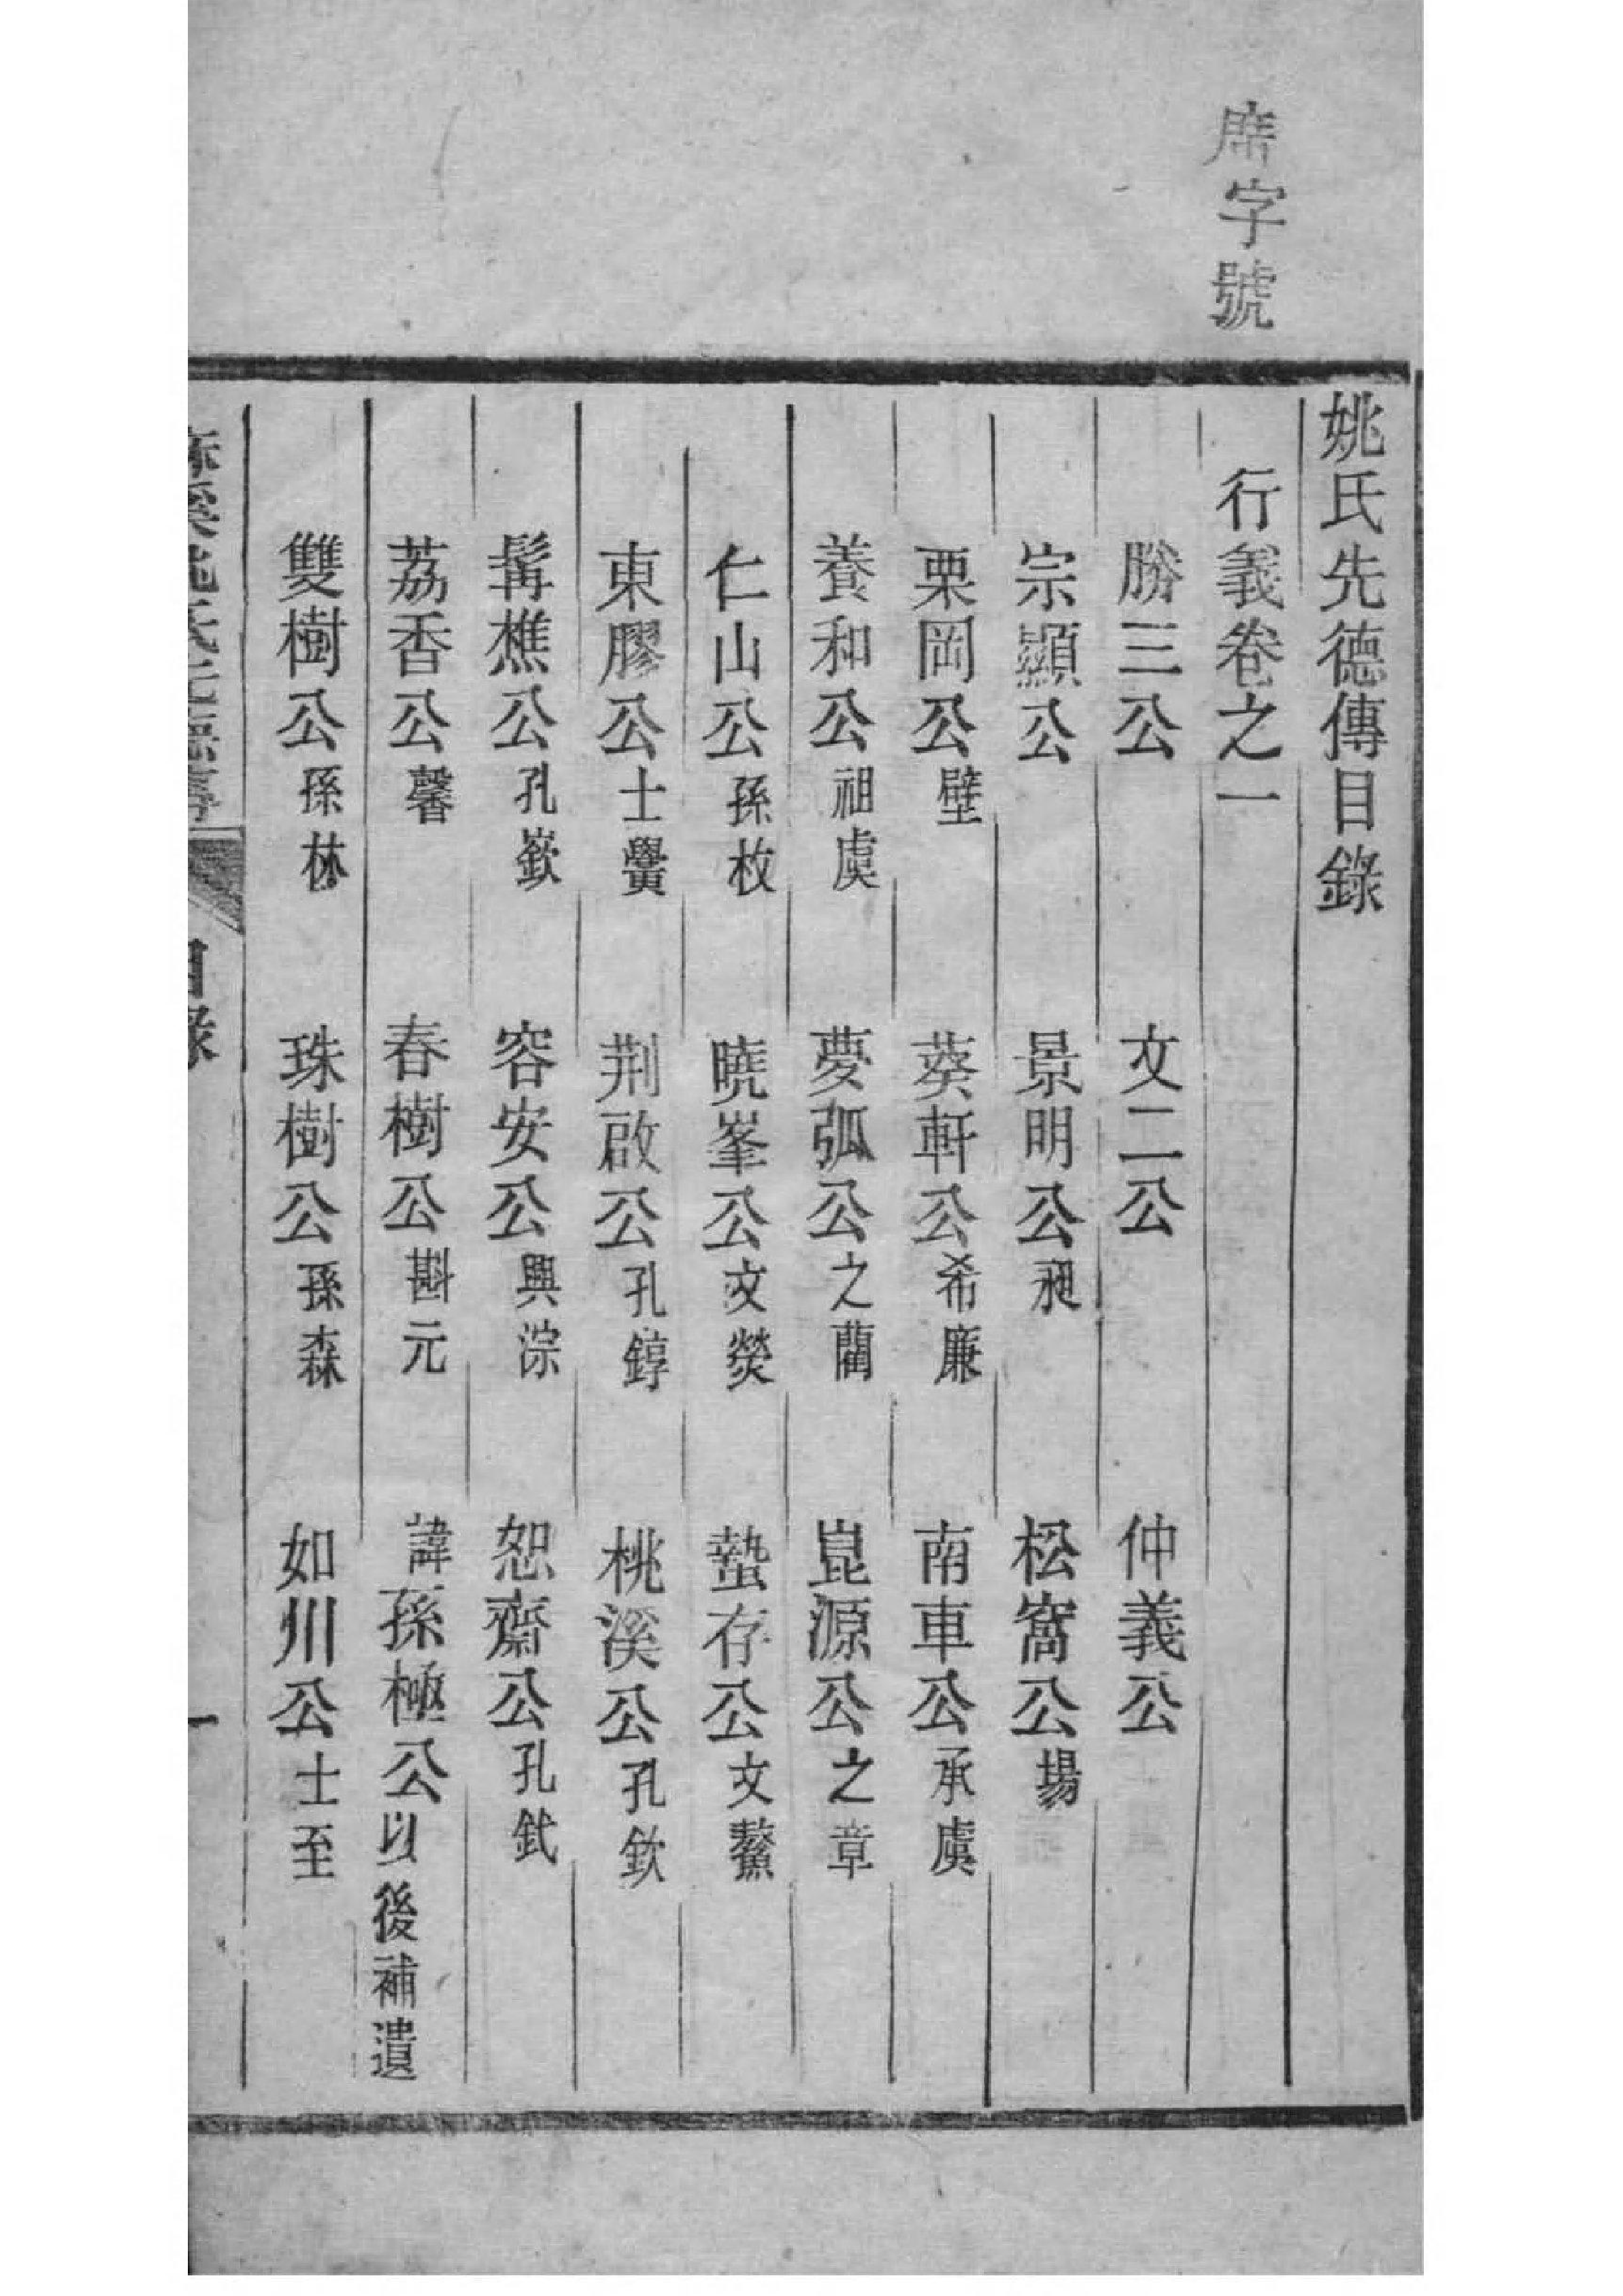 席字號
姚氏先德傳目錄
行義卷之一
勝三公 文二公 仲義公
宗顯公 景明公昶 松窩公場
栗岡公壁 葵軒公希廉 南車公承虞
養和公祖虞 夢弧公之蘭 崑源公之章
仁山公孫枚 曉峯公文熒 蟄存公文鰲
東膠公士黌 荆啟公孔錞 桃溪公孔欽
髯樵公孔嶔 容安公興淙 恕齋公孔鈇
荔香公馨 春樹公斟元 諱孫極公以後補遺
雙樹公孫林 珠樹公孫森 如川公士至
麻溪姚氏先德傳 目錄 一